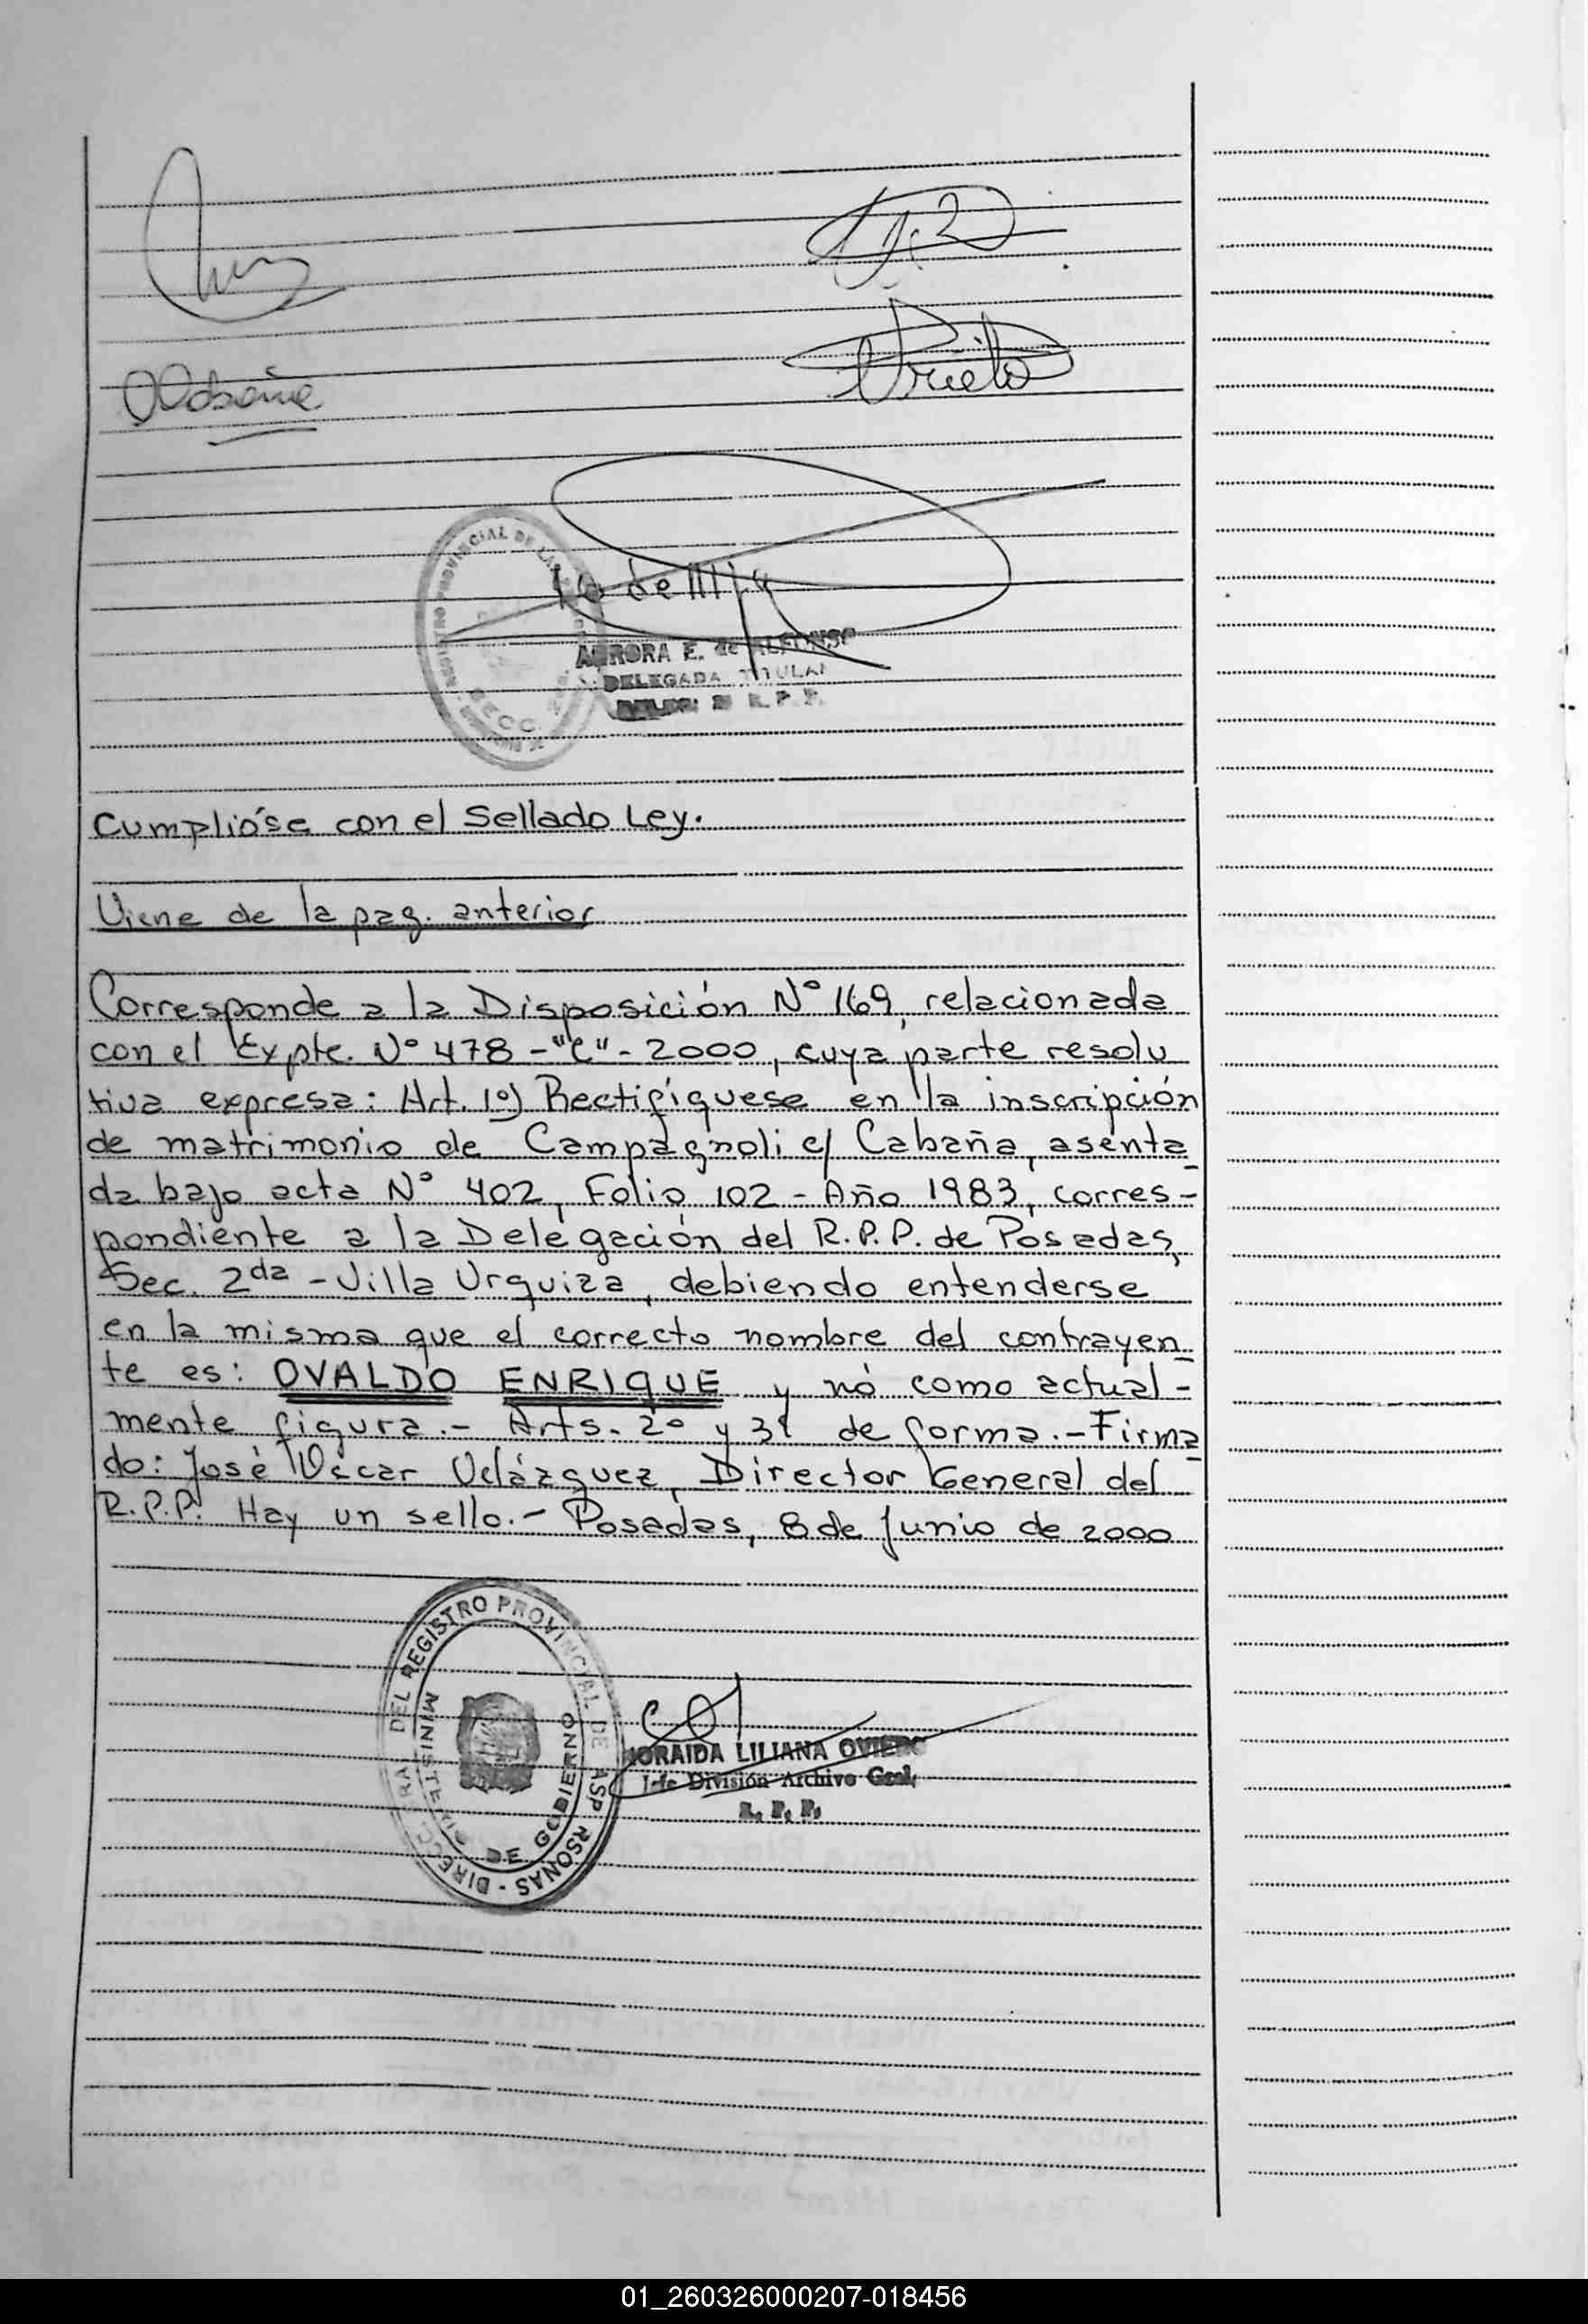 Prieto
REGISTRO PROVINCIAL DE LAS
SECC.
AURORA E. de ALFONSO
DELEGADA TITULAR
R. P. P.
Cumplióse con el Sellado Ley.
Viene de la pag. anterior
Corresponde a la Disposición N° 169, relacionada
con el Expte. N° 478 - "C" - 2000, cuya parte resolu
tiva expresa: Art. 1º) Rectifíquese en la inscripción
de matrimonio de Campagnoli c/ Cabaña, asenta
da bajo acta N° 402, Folio 102 - Año 1983, corres-
pondiente a la Delegación del R.P.P. de Posadas,
Sec. 2da - Villa Urquiza, debiendo entenderse
en la misma que el correcto nombre del contrayen
te es: OVALDO ENRIQUE y nó como actual-
mente figura.- Arts. 2° y 3° de forma.- Firma
do: José Oscar Velázquez, Director General del
R.P.P. Hay un sello.- Posadas, 8 de Junio de 2000
DIRECC. GRAL DEL REGISTRO PROVINCIAL DE LAS PERSONAS
MINISTERIO DE GOBIERNO
ZORAIDA LILIANA OVIEDO
Jefe División Archivo Gral.
R. P. P.
01_260326000207-018456